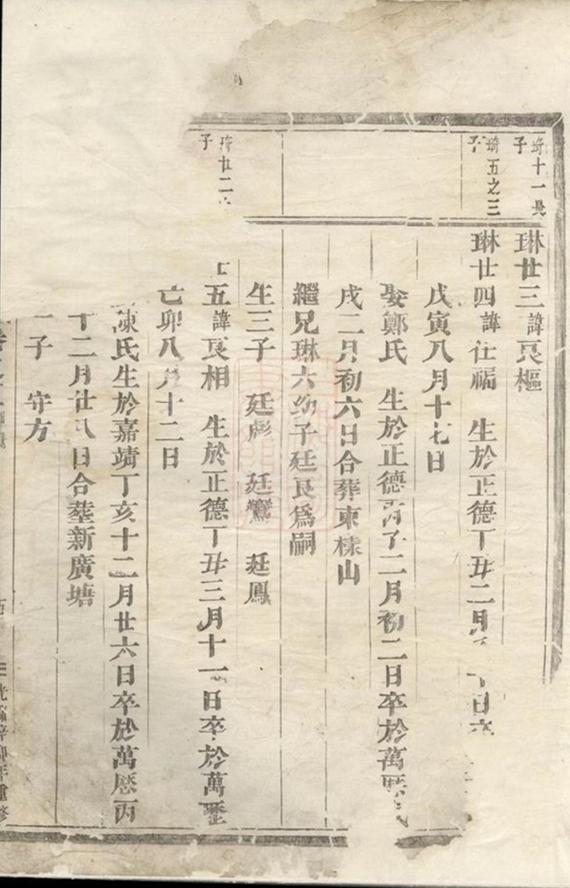 琦十一長子
琳廿三諱良樞
琦五之三子
琳廿四諱仕福 生於正德丁丑二月 十日卒
戊寅八月十七日
娶鄭氏 生於正德丙子二月初二日卒於萬歷
戌二月初六日合葬東樣山
繼兄琳六幼子廷良爲嗣
生三子 廷彪 廷鸞 廷鳳
琦廿二 子
五諱良相 生於正德丁丑三月十一日卒於萬歷
亡卯八月十二日
陳氏生於嘉靖丁亥十二月廿六日卒於萬歷丙
十二月廿八日合塟新廣塘
一子 守方
年重修